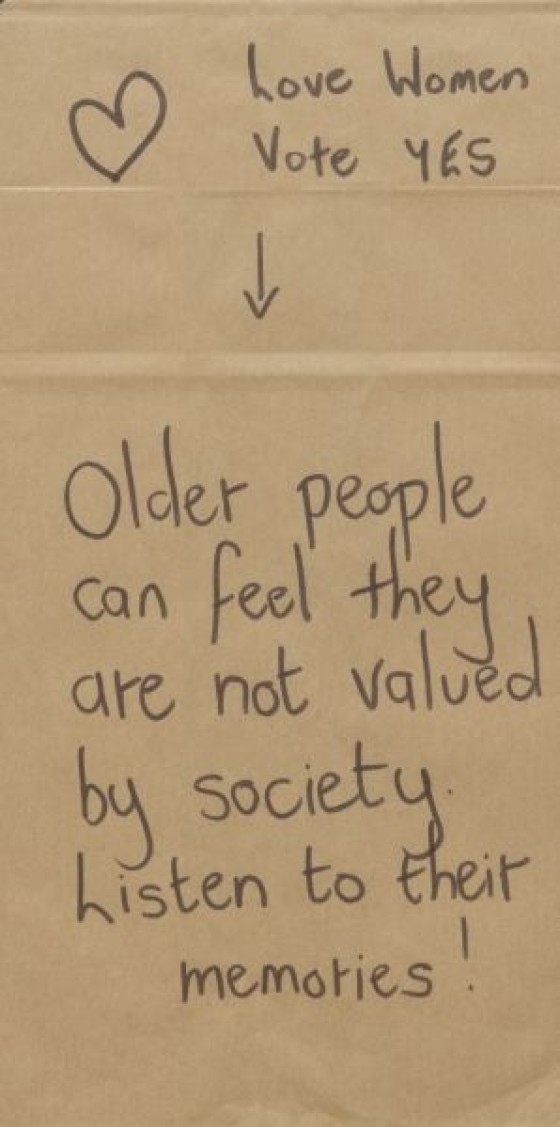 Love Women
Vote YES
Older people
can feel they
are not valued
by society.
Listen to their
memories!